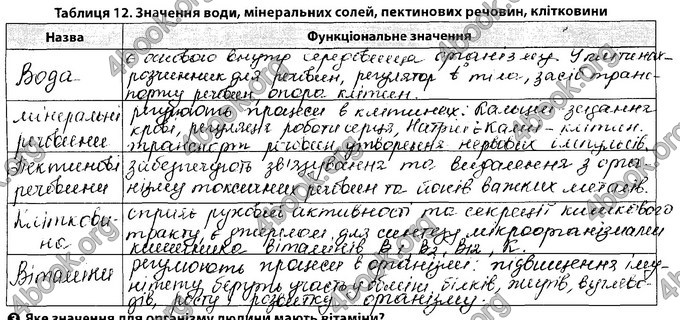 Таблиця 12. Значення води, мінеральних солей, пектинових речовин, клітковини
Назва Функціональне значення
Вода є основою внутр середовища організму. У клітинах-
розчинник для речовин, регулятор t тіла, засіб транс-
порту речовин, опора клітин.
Мінеральні регулюють процеси в клітинах: Кальцій зсідання
речовини крові, регуляція роботи серця, Натрій і Калій - клітин.
транспорт речовин, утворення нервових імпульсів.
Пектинові забезпечують зв'язування та виділення з орга-
речовини нізму токсичних речовин та йонів важких металів.
Клiткови- сприяє руховій активності та секреції кишкового
на тракту, є джерелом для синтезу мікроорганізмами
кишечника вітамінів B1, B2, B12, K.
Вітаміни регулюють процеси в організмі: підвищення іму-
нітету, беруть участь у обміні, білків, жирів, вуглево-
дів, росту і розвитку організму.
Яке значення для організму людини мають вітаміни?
4book.org